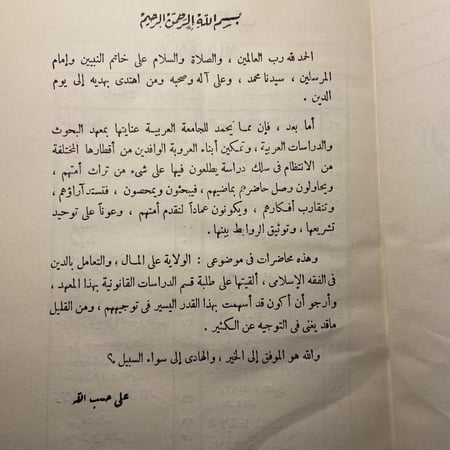 بسم الله الرحمن الرحيم
الحمد لله رب العالمين ، والصلاة والسلام على خاتم النبيين وإمام
المرسلين ، سيدنا محمد ، وعلى آله وصحبه ومن اهتدى بهديه إلى يوم
الدين .
أما بعد ، فإن مما يحمد للجامعة العربية عنايتها بمعهد البحوث
والدراسات العربية ، وتمكين أبناء العروبة الوافدين من أقطارها المختلفة
من الانتظام فى سلك دراسة يطلعون فيها على شىء من تراث أمتهم ،
ويحاولون وصل حاضرهم بماضيهم ، فيبحثون ويمحصون ، فتسدد آراؤهم ،
وتتقارب أفكارهم ، ويكونون عماداً لتقدم أمتهم ، وعوناً على توحيد
تشريعها ، وتوثيق الروابط بينها .
وهذه محاضرات فى موضوعى : الولاية على المال ، والتعامل بالدين
فى الفقه الإسلامى ، ألقيتها على طلبة قسم الدراسات القانونية بهذا المعهد ،
وأرجو أن أكون قد أسهمت بهذا القدر اليسير فى توجيههم ، ومن القليل
ماقد يغنى فى التوجيه عن الكثير .
والله هو الموفق إلى الخير ، والهادى إلى سواء السبيل ؟
على حسب الله